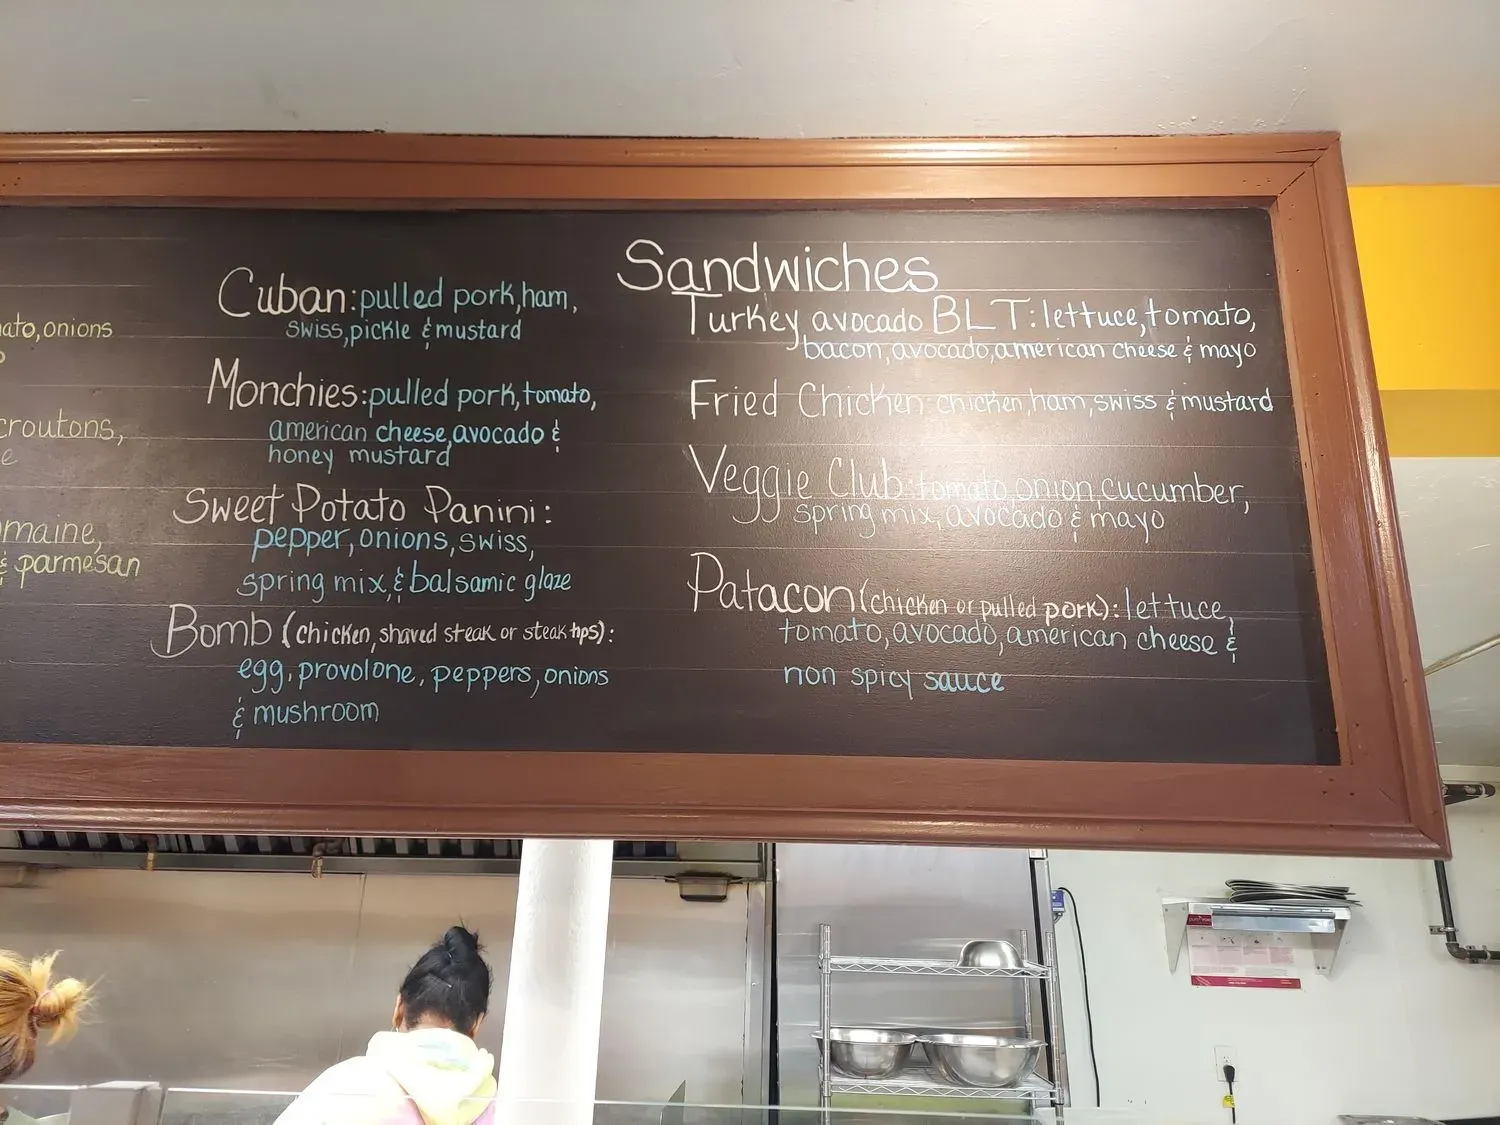 ato, onions
croutons,
e
maine,
& parmesan
Cuban: pulled pork, ham,
swiss, pickle & mustard
Monchies: pulled pork, tomato,
american cheese, avocado &
honey mustard
Sweet Potato Panini:
pepper, onions, swiss,
spring mix, & balsamic glaze
Bomb (chicken, shaved steak or steak tips):
egg, provolone, peppers, onions
& mushroom
Sandwiches
Turkey avocado BLT: lettuce, tomato,
bacon, avocado, american cheese & mayo
Fried Chicken: chicken, ham, swiss & mustard
Veggie Club: tomato, onion, cucumber,
spring mix, avocado & mayo
Patacon (chicken or pulled pork): lettuce,
tomato, avocado, american cheese &
non spicy sauce